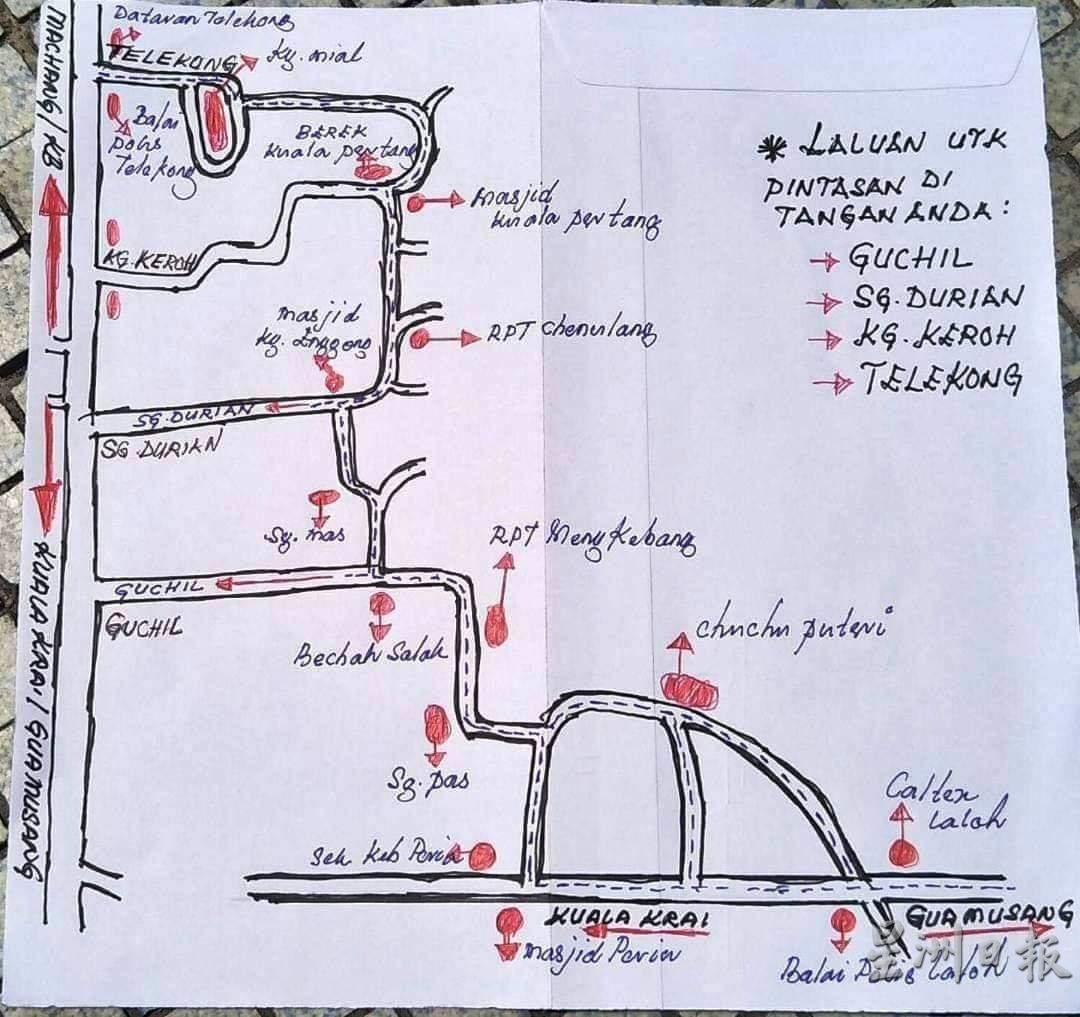 Dataran Telekong
TELEKONG
Kg. mial
MACHANG / KB
Balai
polis
Telekong
BEREK
kuala pertang
masjid
kuala pertang
KG. KEROH
masjid
Kg. Enggong
RPT Chenulang
SG. DURIAN
SG. DURIAN
Sg. mas
RPT Meng Kebang
GUCHIL
GUCHIL
Bechah Salak
chuchu puteri
Sg. pas
Caltex
laloh
KUALA KRAI / GUA MUSANG
Sek Keb Peria
KUALA KRAI
GUA MUSANG
masjid Peria
Balai Polis laloh
* LALUAN UTK
PINTASAN DI
TANGAN ANDA:
→ GUCHIL
→ SG. DURIAN
→ KG. KEROH
→ TELEKONG
星洲日报